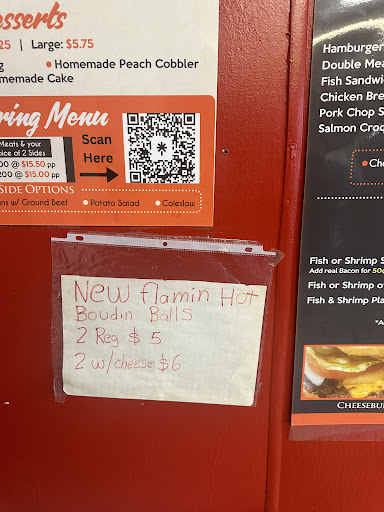 esserts
25 | Large: $5.75
g • Homemade Peach Cobbler
memade Cake
ring Menu
Meats & your
oice of 2 Sides
00 @ $15.50 pp
200 @ $15.00 pp
Scan
Here
SIDE OPTIONS
ns w/ Ground Beef • Potato Salad • Coleslaw
New flamin Hot
Boudin Balls
2 Reg $ 5
2 w/cheese $6
Hamburger
Double Mea
Fish Sandwi
Chicken Bre
Pork Chop S
Salmon Croq
• Ch
Fish or Shrimp S
Add real Bacon for 50
Fish or Shrimp o
Fish & Shrimp Pla
*A
CHEESEBU